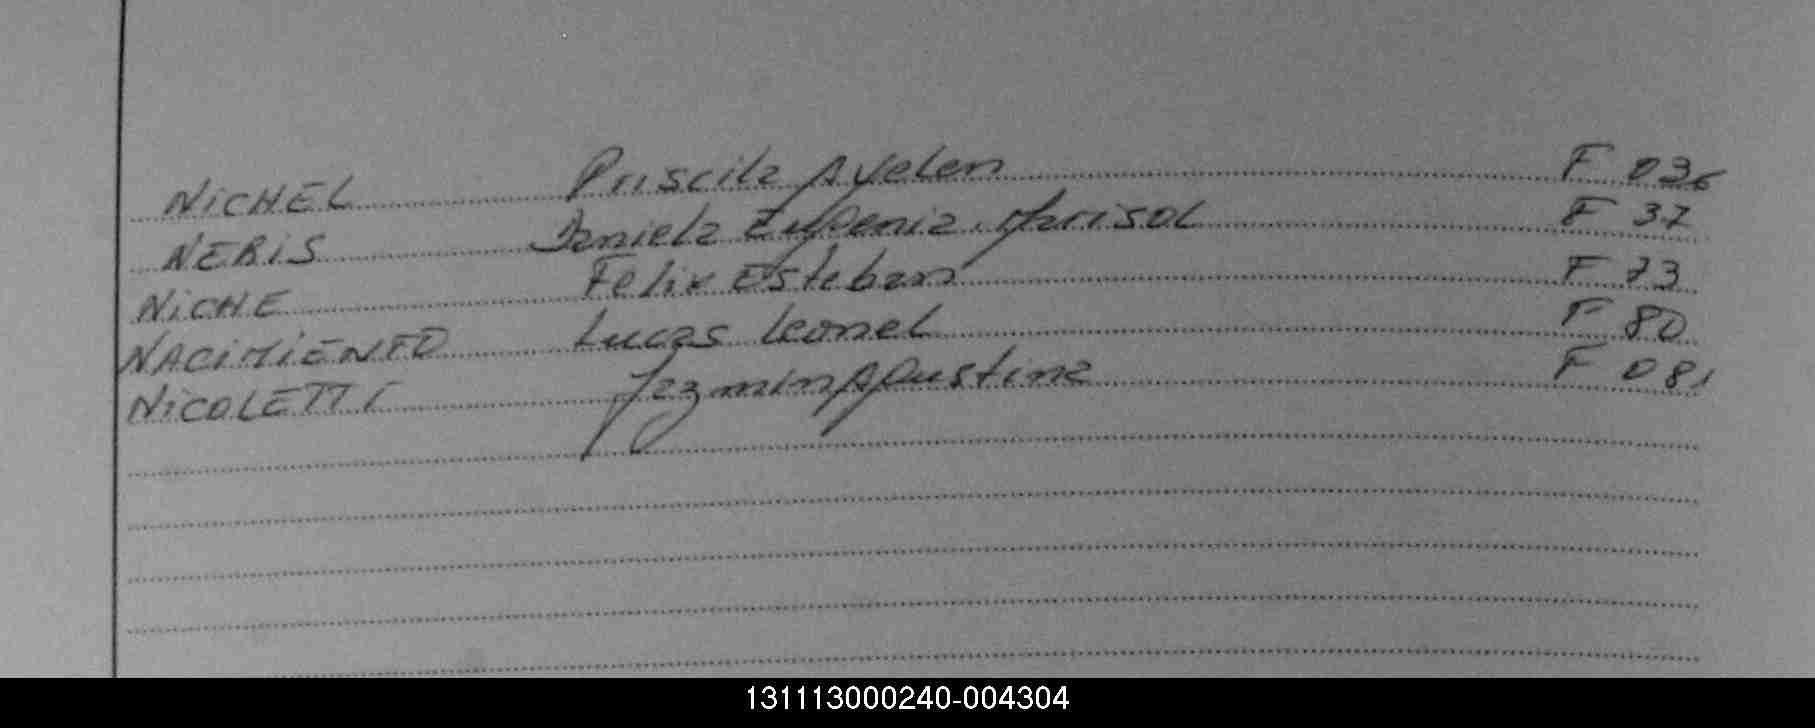 NICHEL Priscila Ayelen F 036
NERIS Daniela Eugenia Marisol F 37
NICHE Felix Esteban F 73
NACIMIENTO Lucas Leonel F 80
NICOLETTI Jazmin Agustina F 081
131113000240-004304